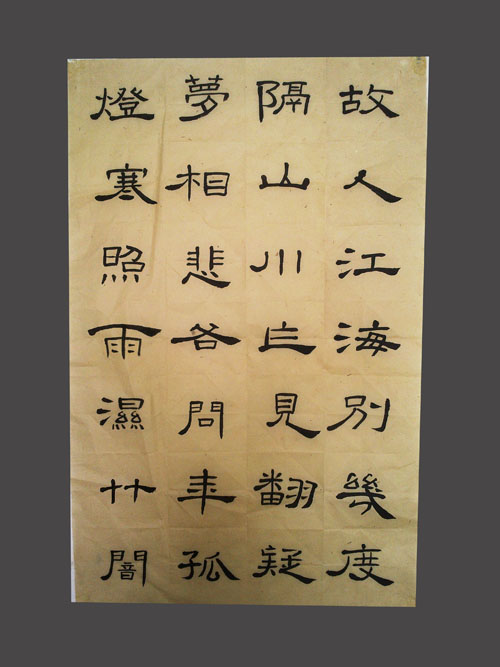 故人江海別幾度
隔山川乍見翻疑
夢相悲各問年孤
燈寒照雨濕竹闇